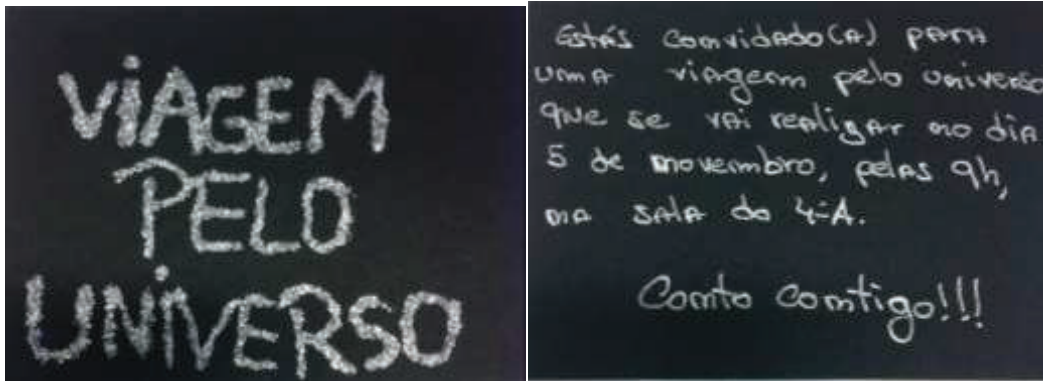 VIAGEM
PELO
UNIVERSO
Estás convidado(A) para
uma viagem pelo universo
que se vai realizar no dia
5 de novembro, pelas 9h,
na sala do 4º-A.
Conto contigo!!!